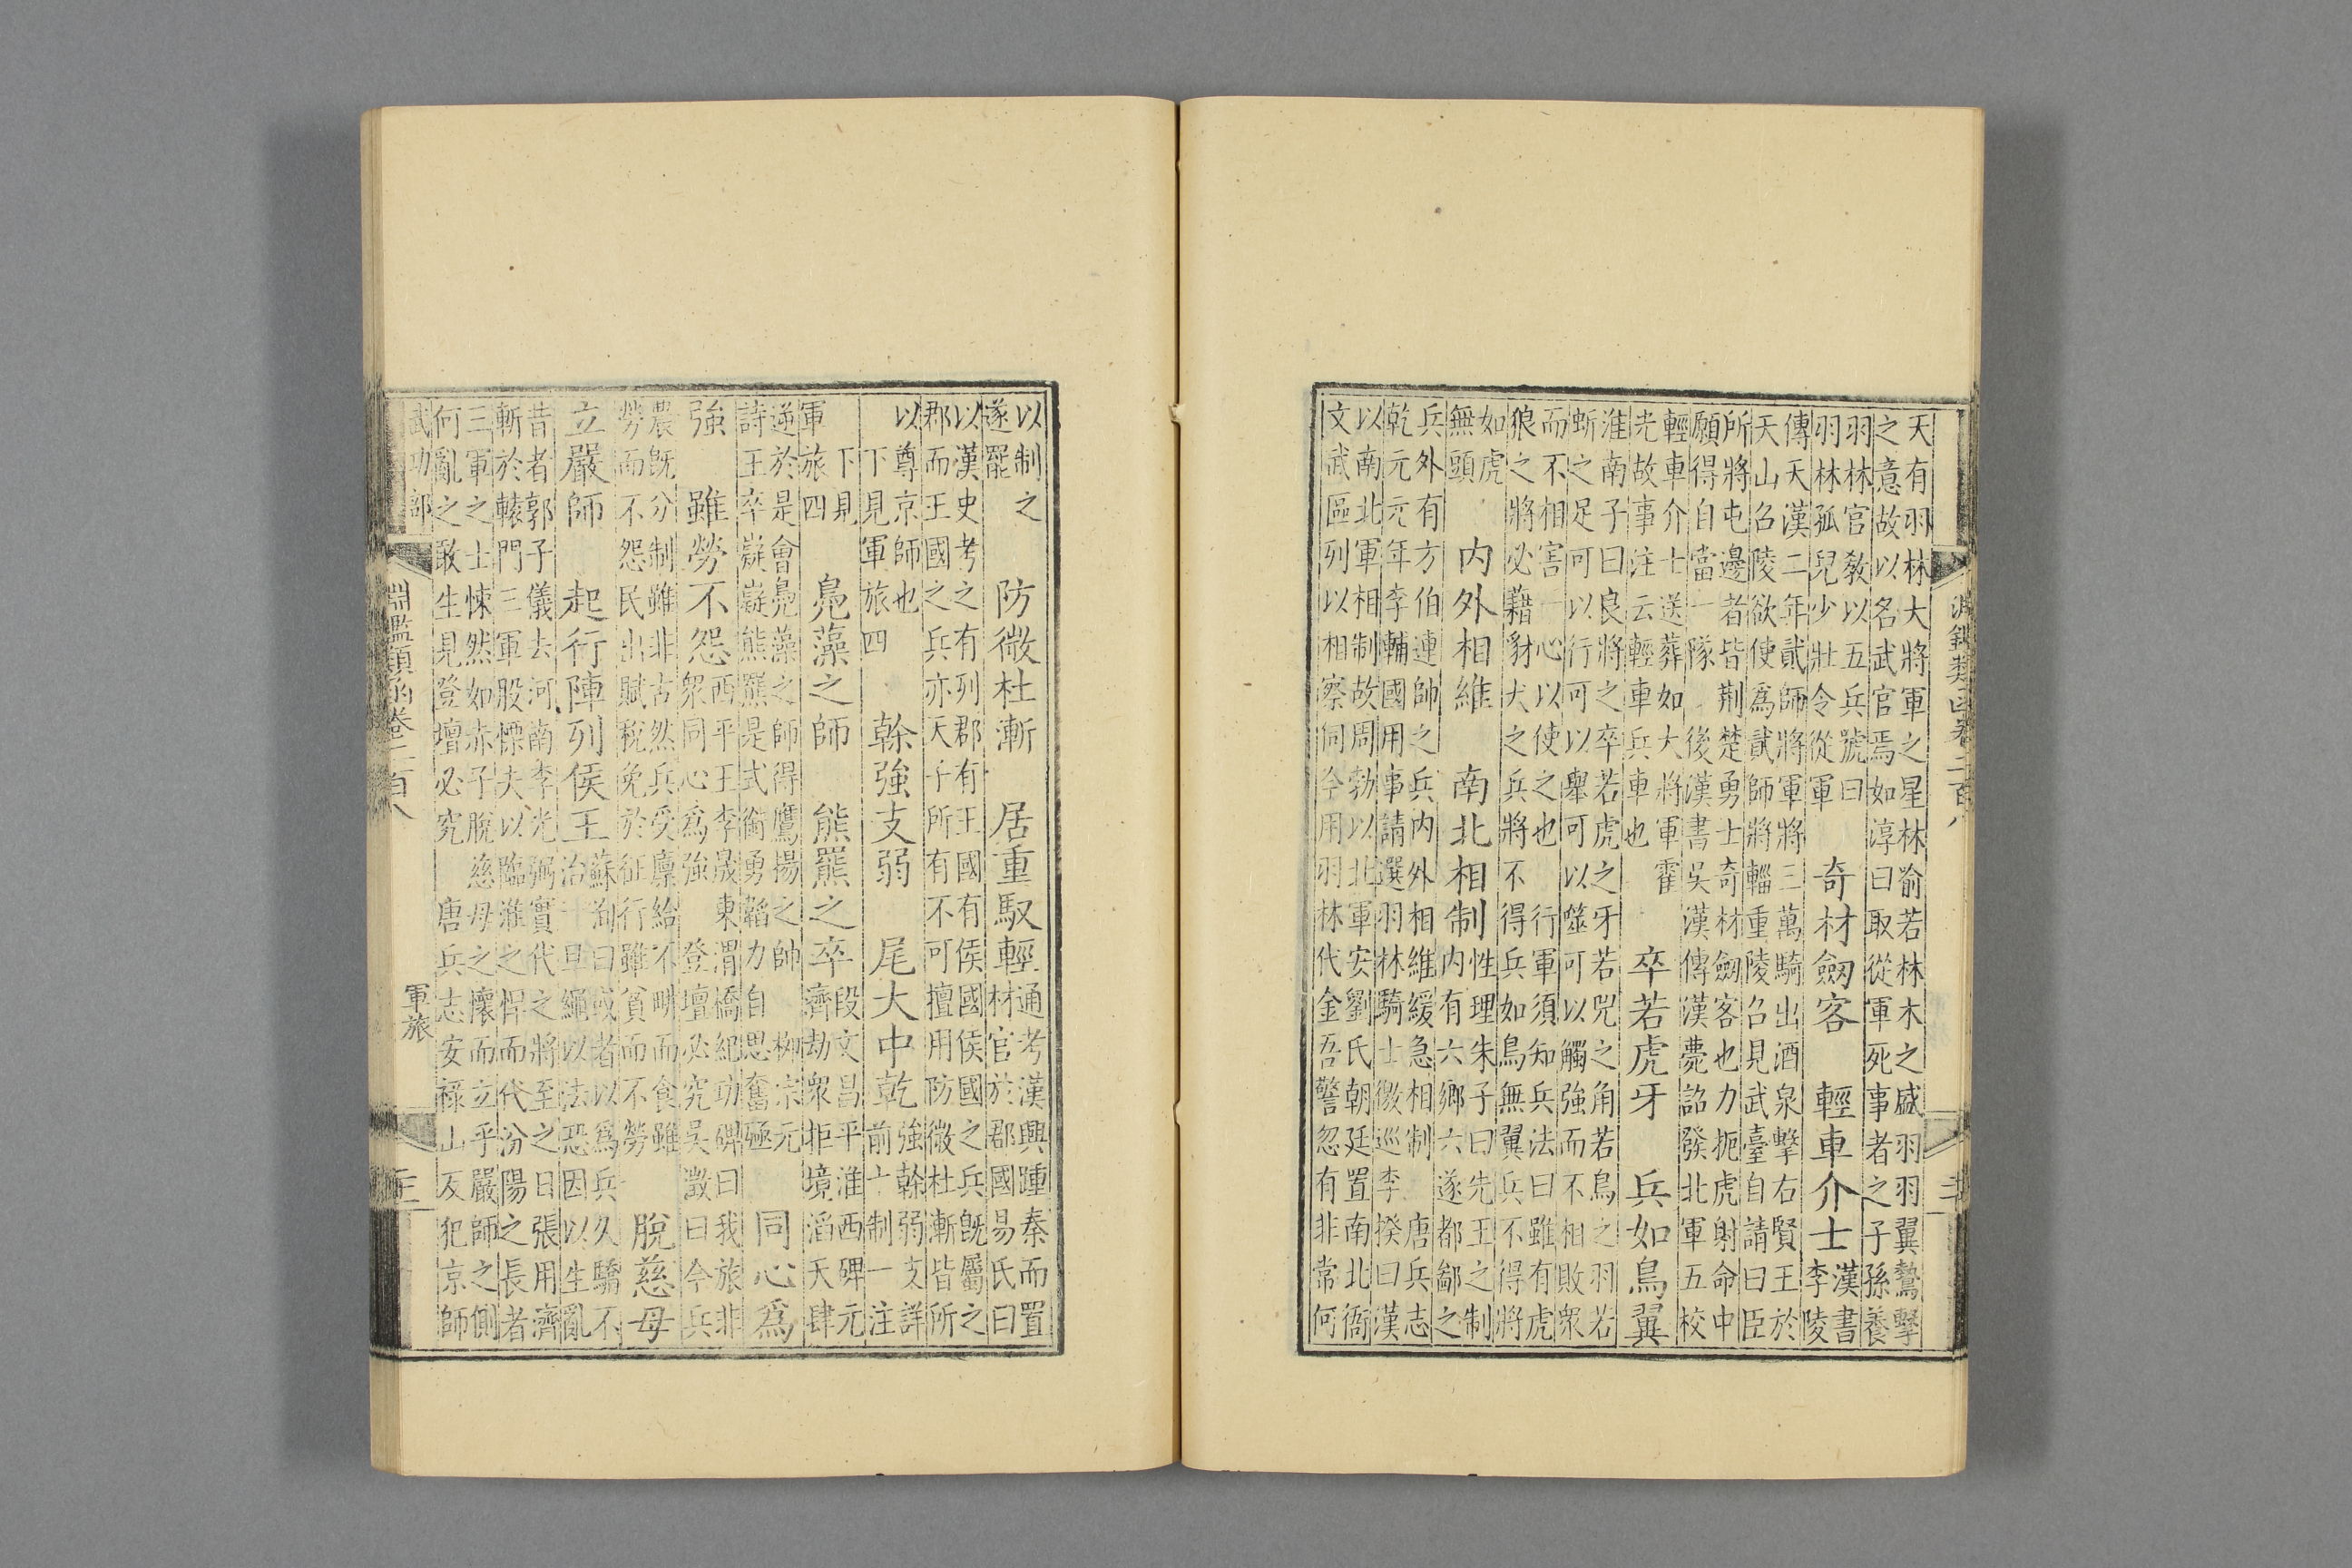 淵鑑類函卷二百八
天有羽林大將軍之星林喻若林木之盛羽羽翼鷙擊
之意故以名武官焉如淳曰取從軍死事者之子孫養
羽林官教以五兵號曰
羽林孤兒少壯令從軍
奇材劒客　輕車介士
漢書
李陵
傳天漢二年貳師將軍將三萬騎出酒泉擊右賢王於
天山召陵欲使爲貳師將輜重陵召見武臺自請曰臣
所將屯邊者皆荆楚勇士奇材劒客也力扼虎射命中
願得自當一隊　後漢書吳漢傳漢薨詔發北軍五校
輕車介士送葬如大將軍霍
光故事注云輕車兵車也
卒若虎牙　兵如鳥翼
淮南子曰良將之卒若虎之牙若兕之角若鳥之羽若
蚈之足可以行可以舉可以噬可以觸強而不相敗衆
而不相害一心以使之也　行軍須知兵法曰雖有虎
狼之將必藉豺犬之兵將不得兵如鳥無翼兵不得將
如虎
無頭
内外相維　南北相制
性理朱子曰先王之制
内有六鄉六遂都鄙之
兵外有方伯連帥之兵内外相維緩急相制　唐兵志
乾元元年李輔國用事請選羽林騎士徼巡李揆曰漢
以南北軍相制故周勃以北軍安劉氏朝廷置南北衙
文武區列以相察伺今用羽林代金吾警忽有非常何
以制之
遂罷
防微杜漸　居重馭輕
通考漢興踵秦而置
材官於郡國易氏曰
以漢史考之有列郡有王國有侯國侯國之兵既屬之
郡而王國之兵亦天子所有不可擅用防微杜漸皆所
以尊京師也
下見軍旅四
幹強支弱　尾大中乾
強幹弱支詳
前十制一注
下見
軍旅四
鳧藻之師　熊羆之卒
段文昌平淮西碑元
濟劫衆拒境滔天肆
逆於是會鳧藻之師得鷹揚之帥　柳宗元
詩王卒嶷嶷熊羆是式銜勇韜力自思奮殛
同心爲
強　雖勞不怨
西平王李晟東渭橋紀功碑曰我旅非
衆同心爲強　登壇必究吳澂曰今兵
農既分制雖非古然兵受廩給不畊而食雖
勞而不怨民出賦稅免於征行雖貧而不勞
脫慈母
立嚴師　起行陣列侯王
蘇洵曰或者以爲兵久驕不
治一旦繩以法恐因以生亂
昔者郭子儀去河南李光弼實代之將至之日張用濟
斬於轅門三軍股慄夫以臨淮之悍而代汾陽之長者
三軍之士悚然如赤子脫慈母之懷而立乎嚴師之側
何亂之敢生見登壇必究　唐兵志安祿山反犯京師
武功部　淵鑑類函卷二百八　軍旅　三